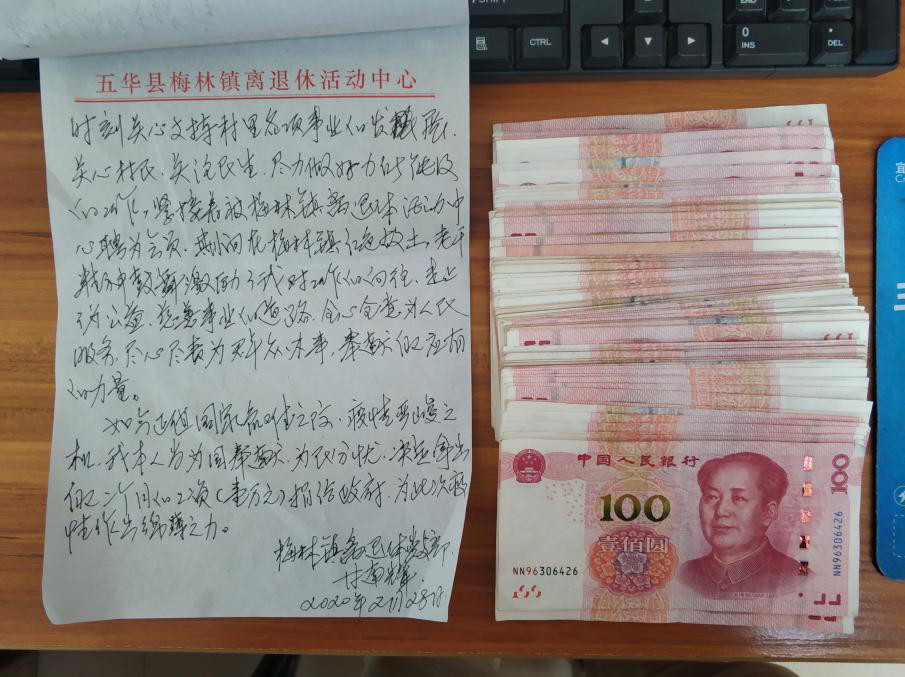 五华县梅林镇离退休活动中心
时刻关心支持村里各项事业的发展、
关心村民、关注民生、尽力做好力所能及
的工作，紧接着被梅林镇离退休活动中
心聘为会员、期间在梅林镇红色故土、老干
精神鼓舞激励了我对工作的向往、走上
了为公益、慈善事业的道路、全心全意为人民
服务、尽心尽责为群众办事、奉献自己应有
的力量。
如今正值国家危难之际、疫情严峻之
机、我本人当为国奉献、为民分忧、决定拿出
自己二个月的工资（壹万元）捐给政府、为此次疫
情作出绵薄之力。
梅林镇离退休党支部
2020年2月28日
中国人民银行
100
100
壹佰圆
NN96306426
NN96306426
100
0
INS
CTRL
DEL